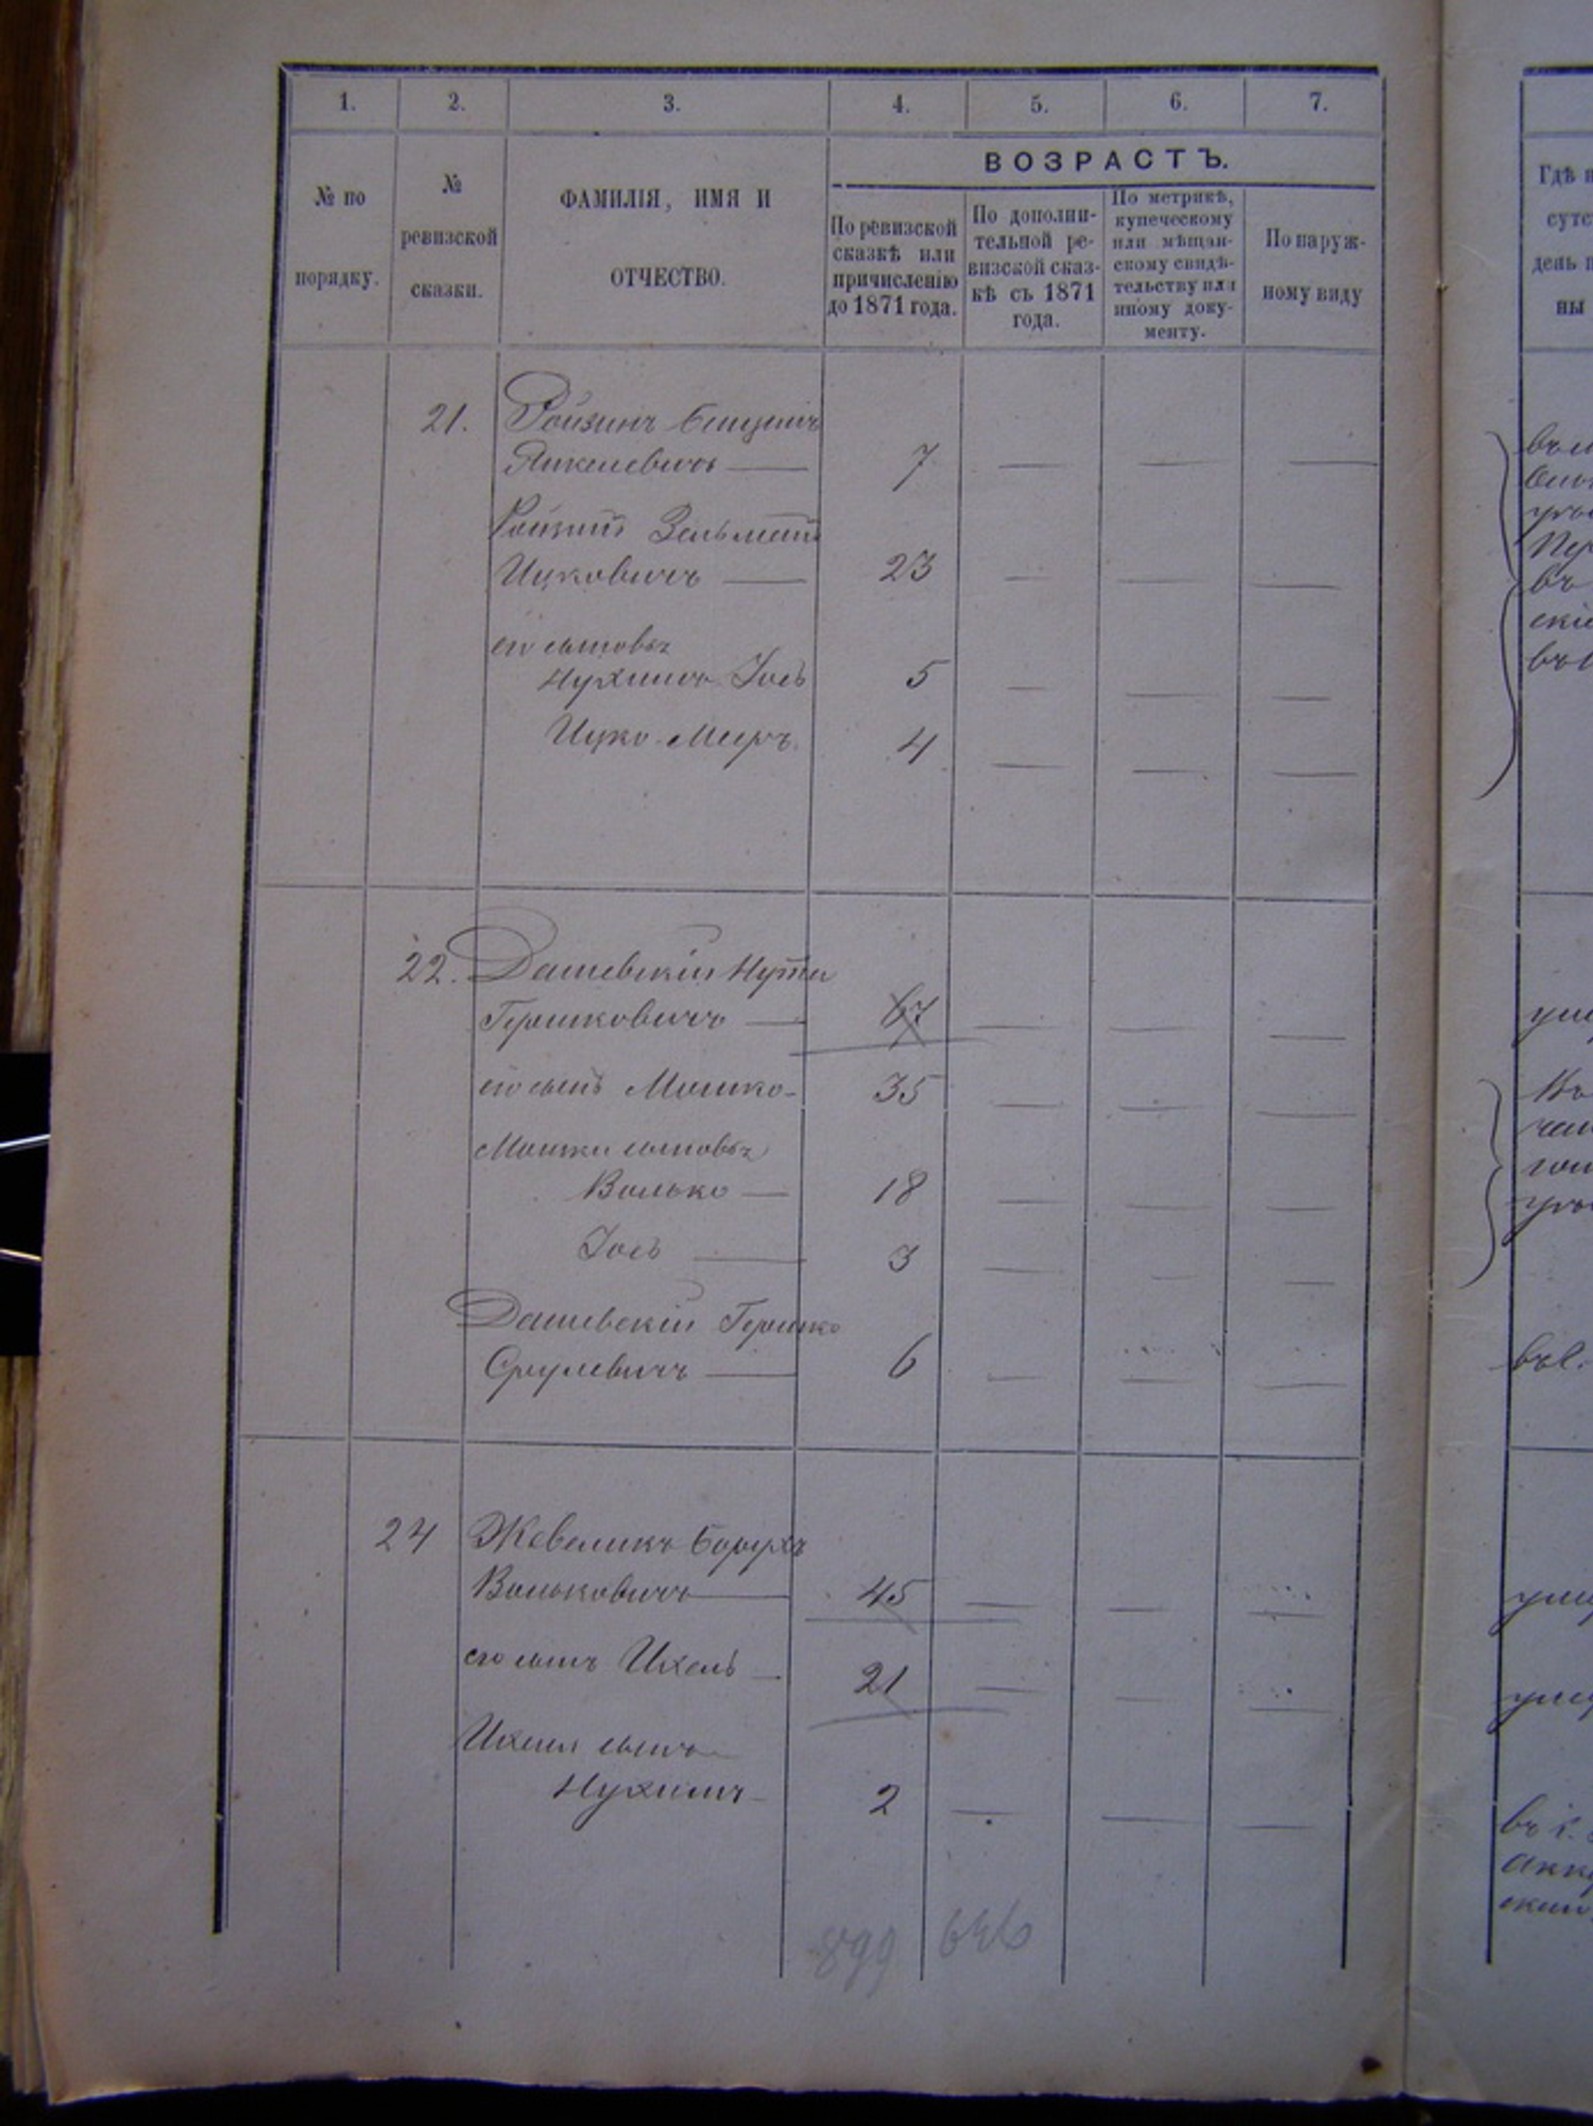 1. 2. 3. 4. 5. 6. 7.
№ по порядку.
№ ревизской сказки.
ФАМИЛІЯ, ИМЯ И ОТЧЕСТВО.
ВОЗРАСТЪ.
По ревизской сказкѣ или причисленію до 1871 года.
По дополни-
тельной ре-
визской сказ-
кѣ съ 1871
года.
По метрикѣ,
купеческому
или мѣщан-
скому свидѣ-
тельству или
иному доку-
менту.
По наруж-
ному виду
Гдѣ
21. Ройзинъ
Янкелевичъ — 7 — — —
Ройзинъ Зельманъ
Ицковичъ — 23 — — —
его сыновья
Нухимъ Іосъ 5 — — —
Ицко-Мееръ 4 — — —
22. Дашевскій Нута
Гершковичъ — 67 — — —
его сынъ Мошко - 35 — — —
Мошки сыновья
Волько — 18 — — —
Іосъ — 3 — — —
Дашевскій Гершко
Срулевичъ — 6 — — —
въ с.
24 Жевеликъ Борухъ
Вольковичъ — 45 — — —
его сынъ Ихель — 21 — — —
Ихеля сынъ
Нухимъ - 2 — — —